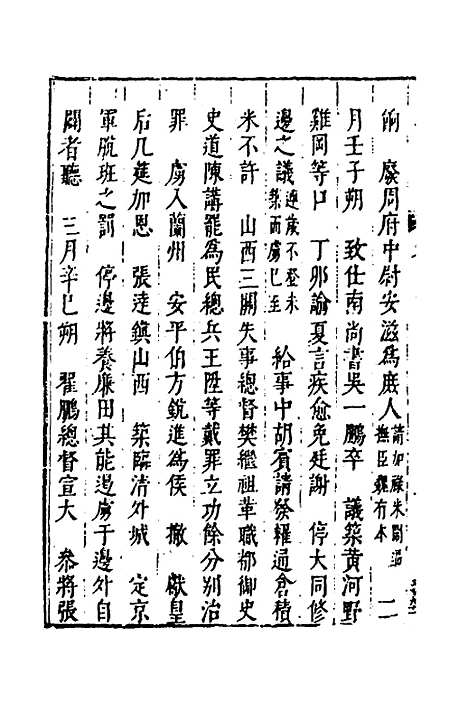 餉　廢周府中尉安㳽爲庶人請加祿米關沮撫臣鑼有本　二
月壬子朔　致仕南尚書吳一鵬卒　議築黃河野
雞岡等口　丁卯諭夏言疾愈免廷謝　停大同修
邊之議連歲不登未築而虜已至　給事中胡賓請發糴通倉積
米不許　山西三關失事總督樊繼祖革職都御史
史道陳講罷爲民總兵王陞等戴罪立功餘分別治
罪　虜入蘭州　安平伯方銳進爲侯　撤　獻皇
后几筵加恩　張達鎮山西　築臨清外城　定京
軍脫班之罰　停邊將養廉田其能邊虜于邊外自
闢者聽　三月辛巳朔　翟鵬總督宣大　叅將張